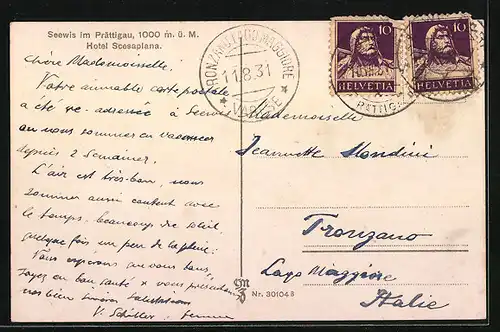 Seewis im Prättigau, 1000 m. ü. M.
Hotel Scesaplana.
Chère Mademoiselle!
Votre aimable carte postale
a été re-adressée à Seewis
ou nous sommes en vacances
depuis 2 Semaines.
L'air est très bon, nous
sommes aussi content avec
le temps, beaucoup de soleil
quelque fois un peu de la pluie.
Nous espérons que vous
soyez en bon santé & vous présentons
nos bien sincères Salutations
V. Schüller
TRONZANO LAGO MAGGIORE
11.8.31
* VARESE *
10
HELVETIA
10
HELVETIA
PRÄTTIGAU
Mademoiselle
Jeannette Mondini
Tronzano
Lago Maggiore
Italie
Nr. 30104 B